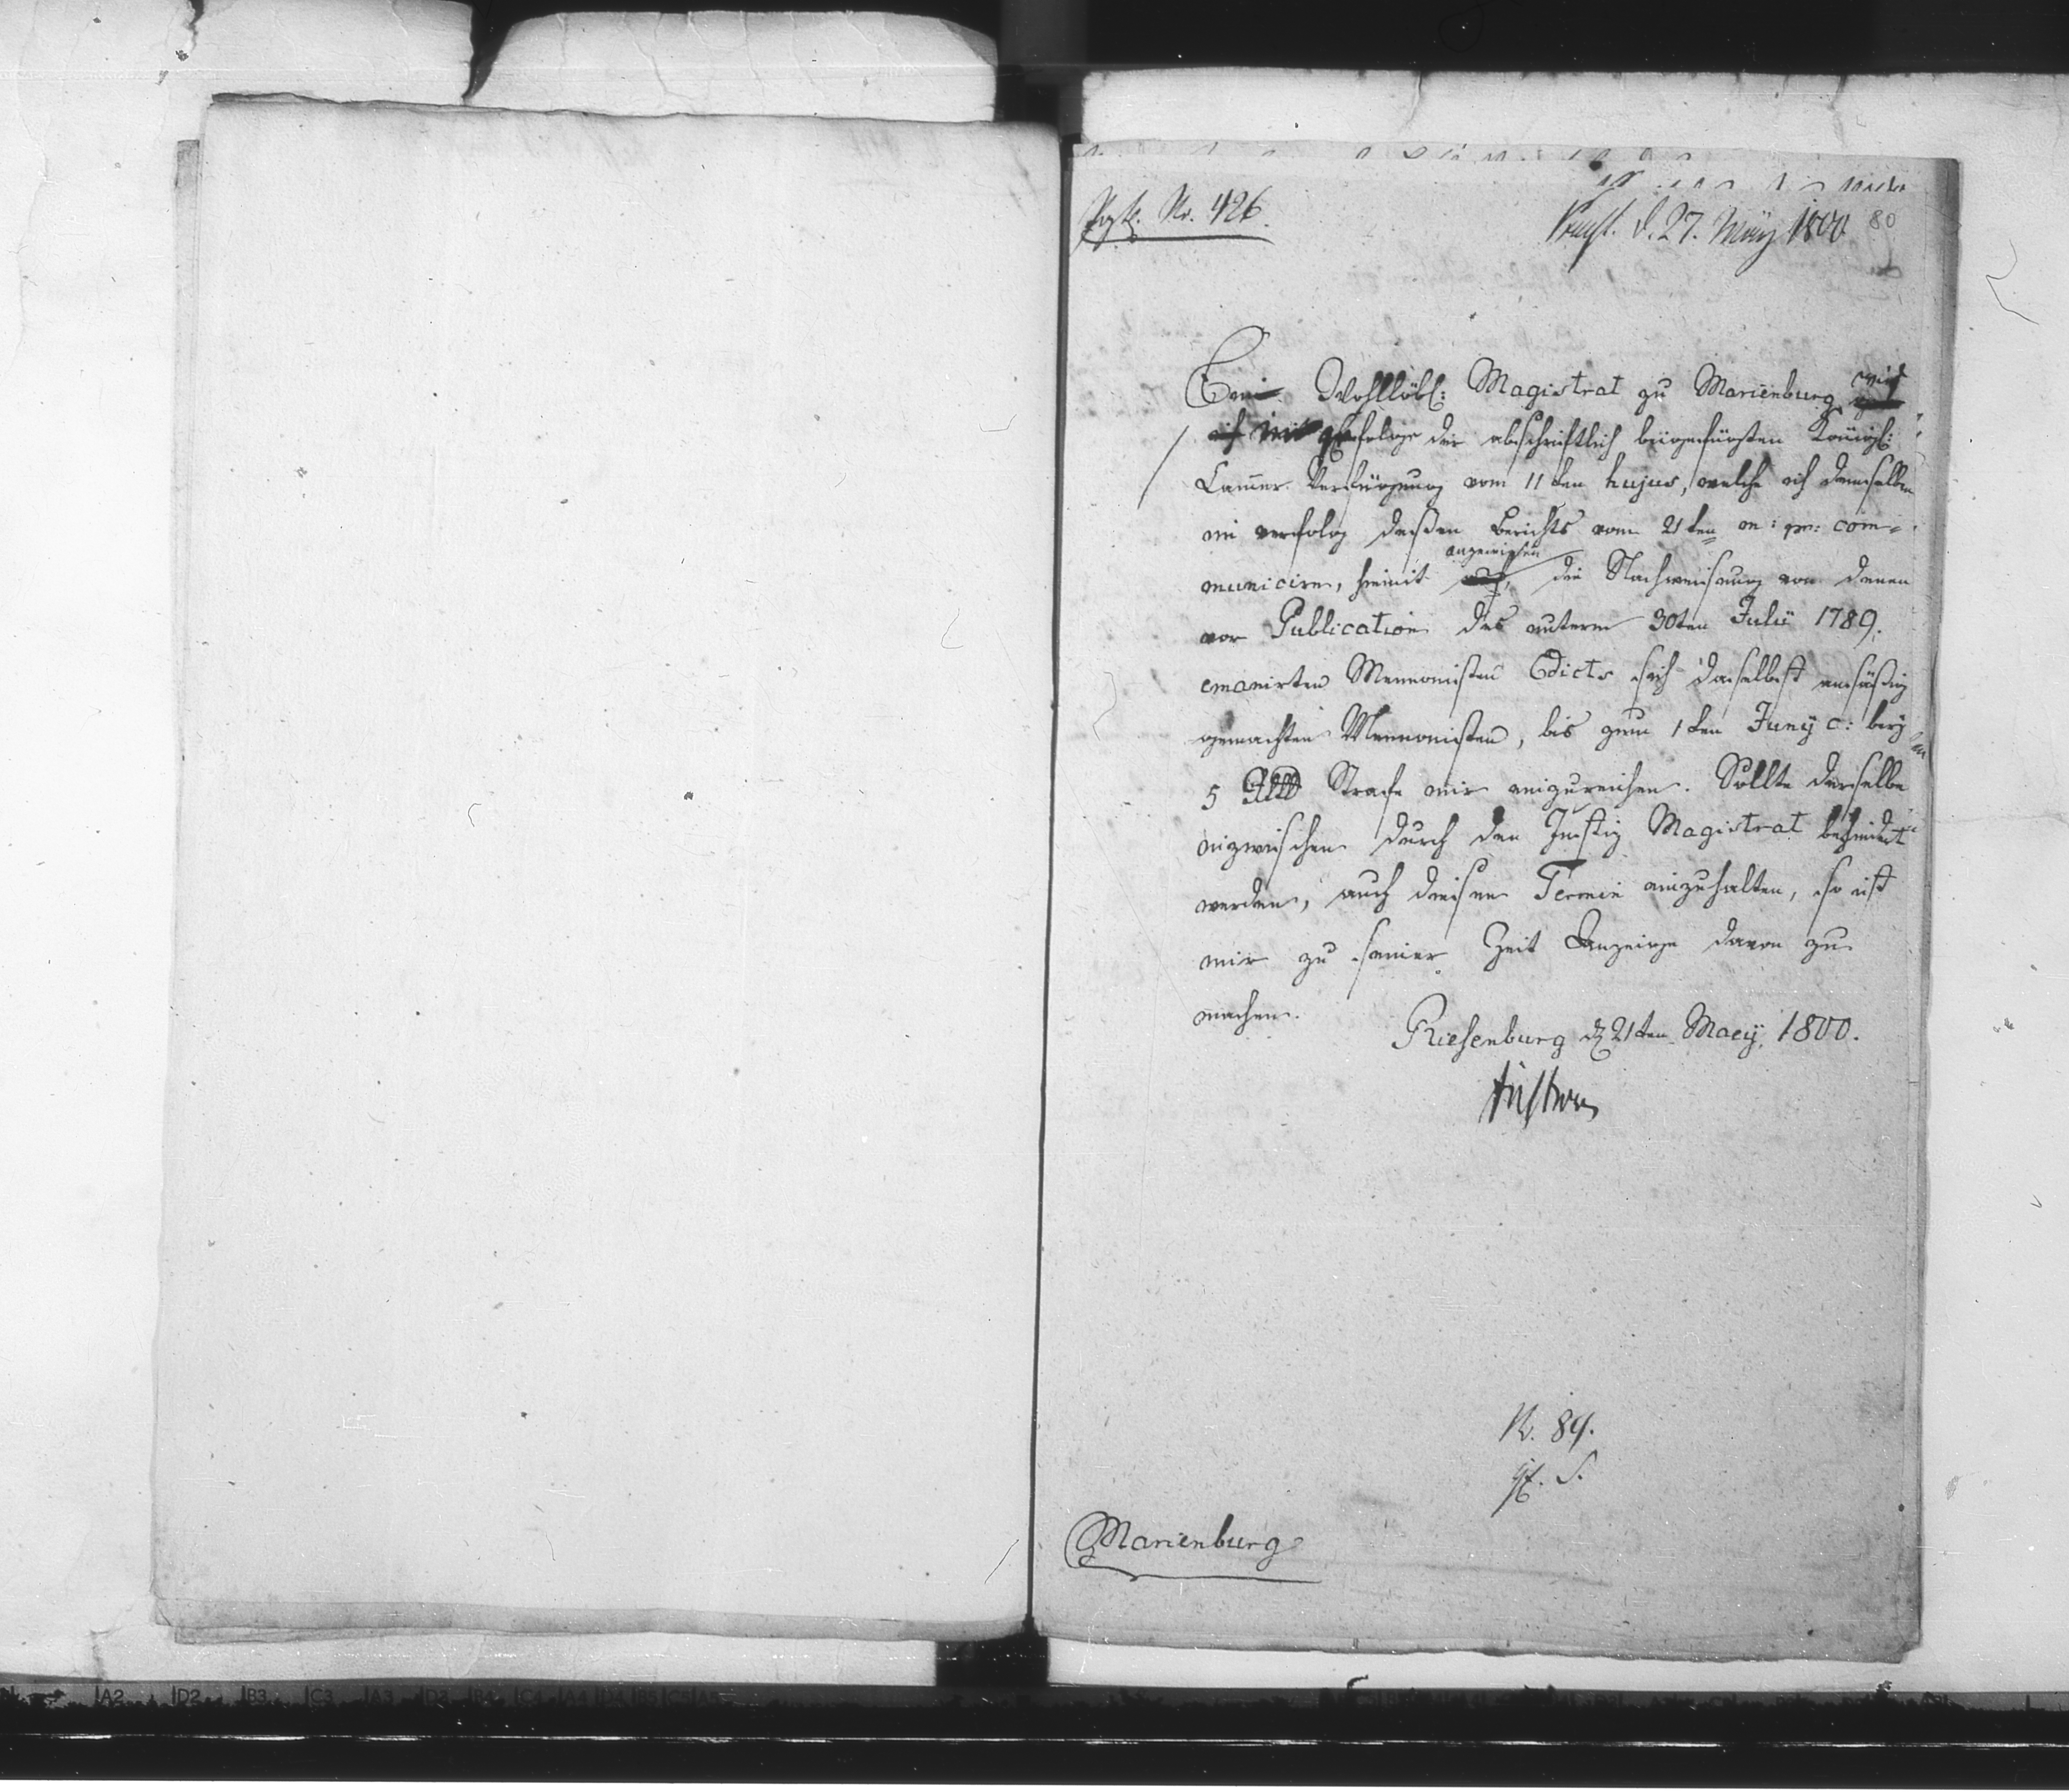 No. 426.
Praest. d. 27. May 1800
80
Ein Wohllöbl: Magistrat zu Marienburg wird
in gefolge der abschriftlich beigefügten Königl:
Cammer Verfügung vom 11ten hujus, welche ich demselben
in verfolg deßen Berichts vom 21ten m: pr: com-
municire, hiemit angewiesen die Nachweisung von denen
vor Publication des unterm 30ten Julii 1789.
emanirten Mennonisten Edicts sich daselbst ansäßig
gemachten Mennonisten, bis zum 1ten Juny c: bey
5 Strafe mir einzureichen. Sollte derselbe
inzwischen durch den Justiz Magistrat behindert
werden, auch diesen Termin einzuhalten, so ist
mir zu seiner Zeit Anzeige davon zu
machen.
Riesenburg d 21ten Maey 1800.
N. 89.
Marienburg